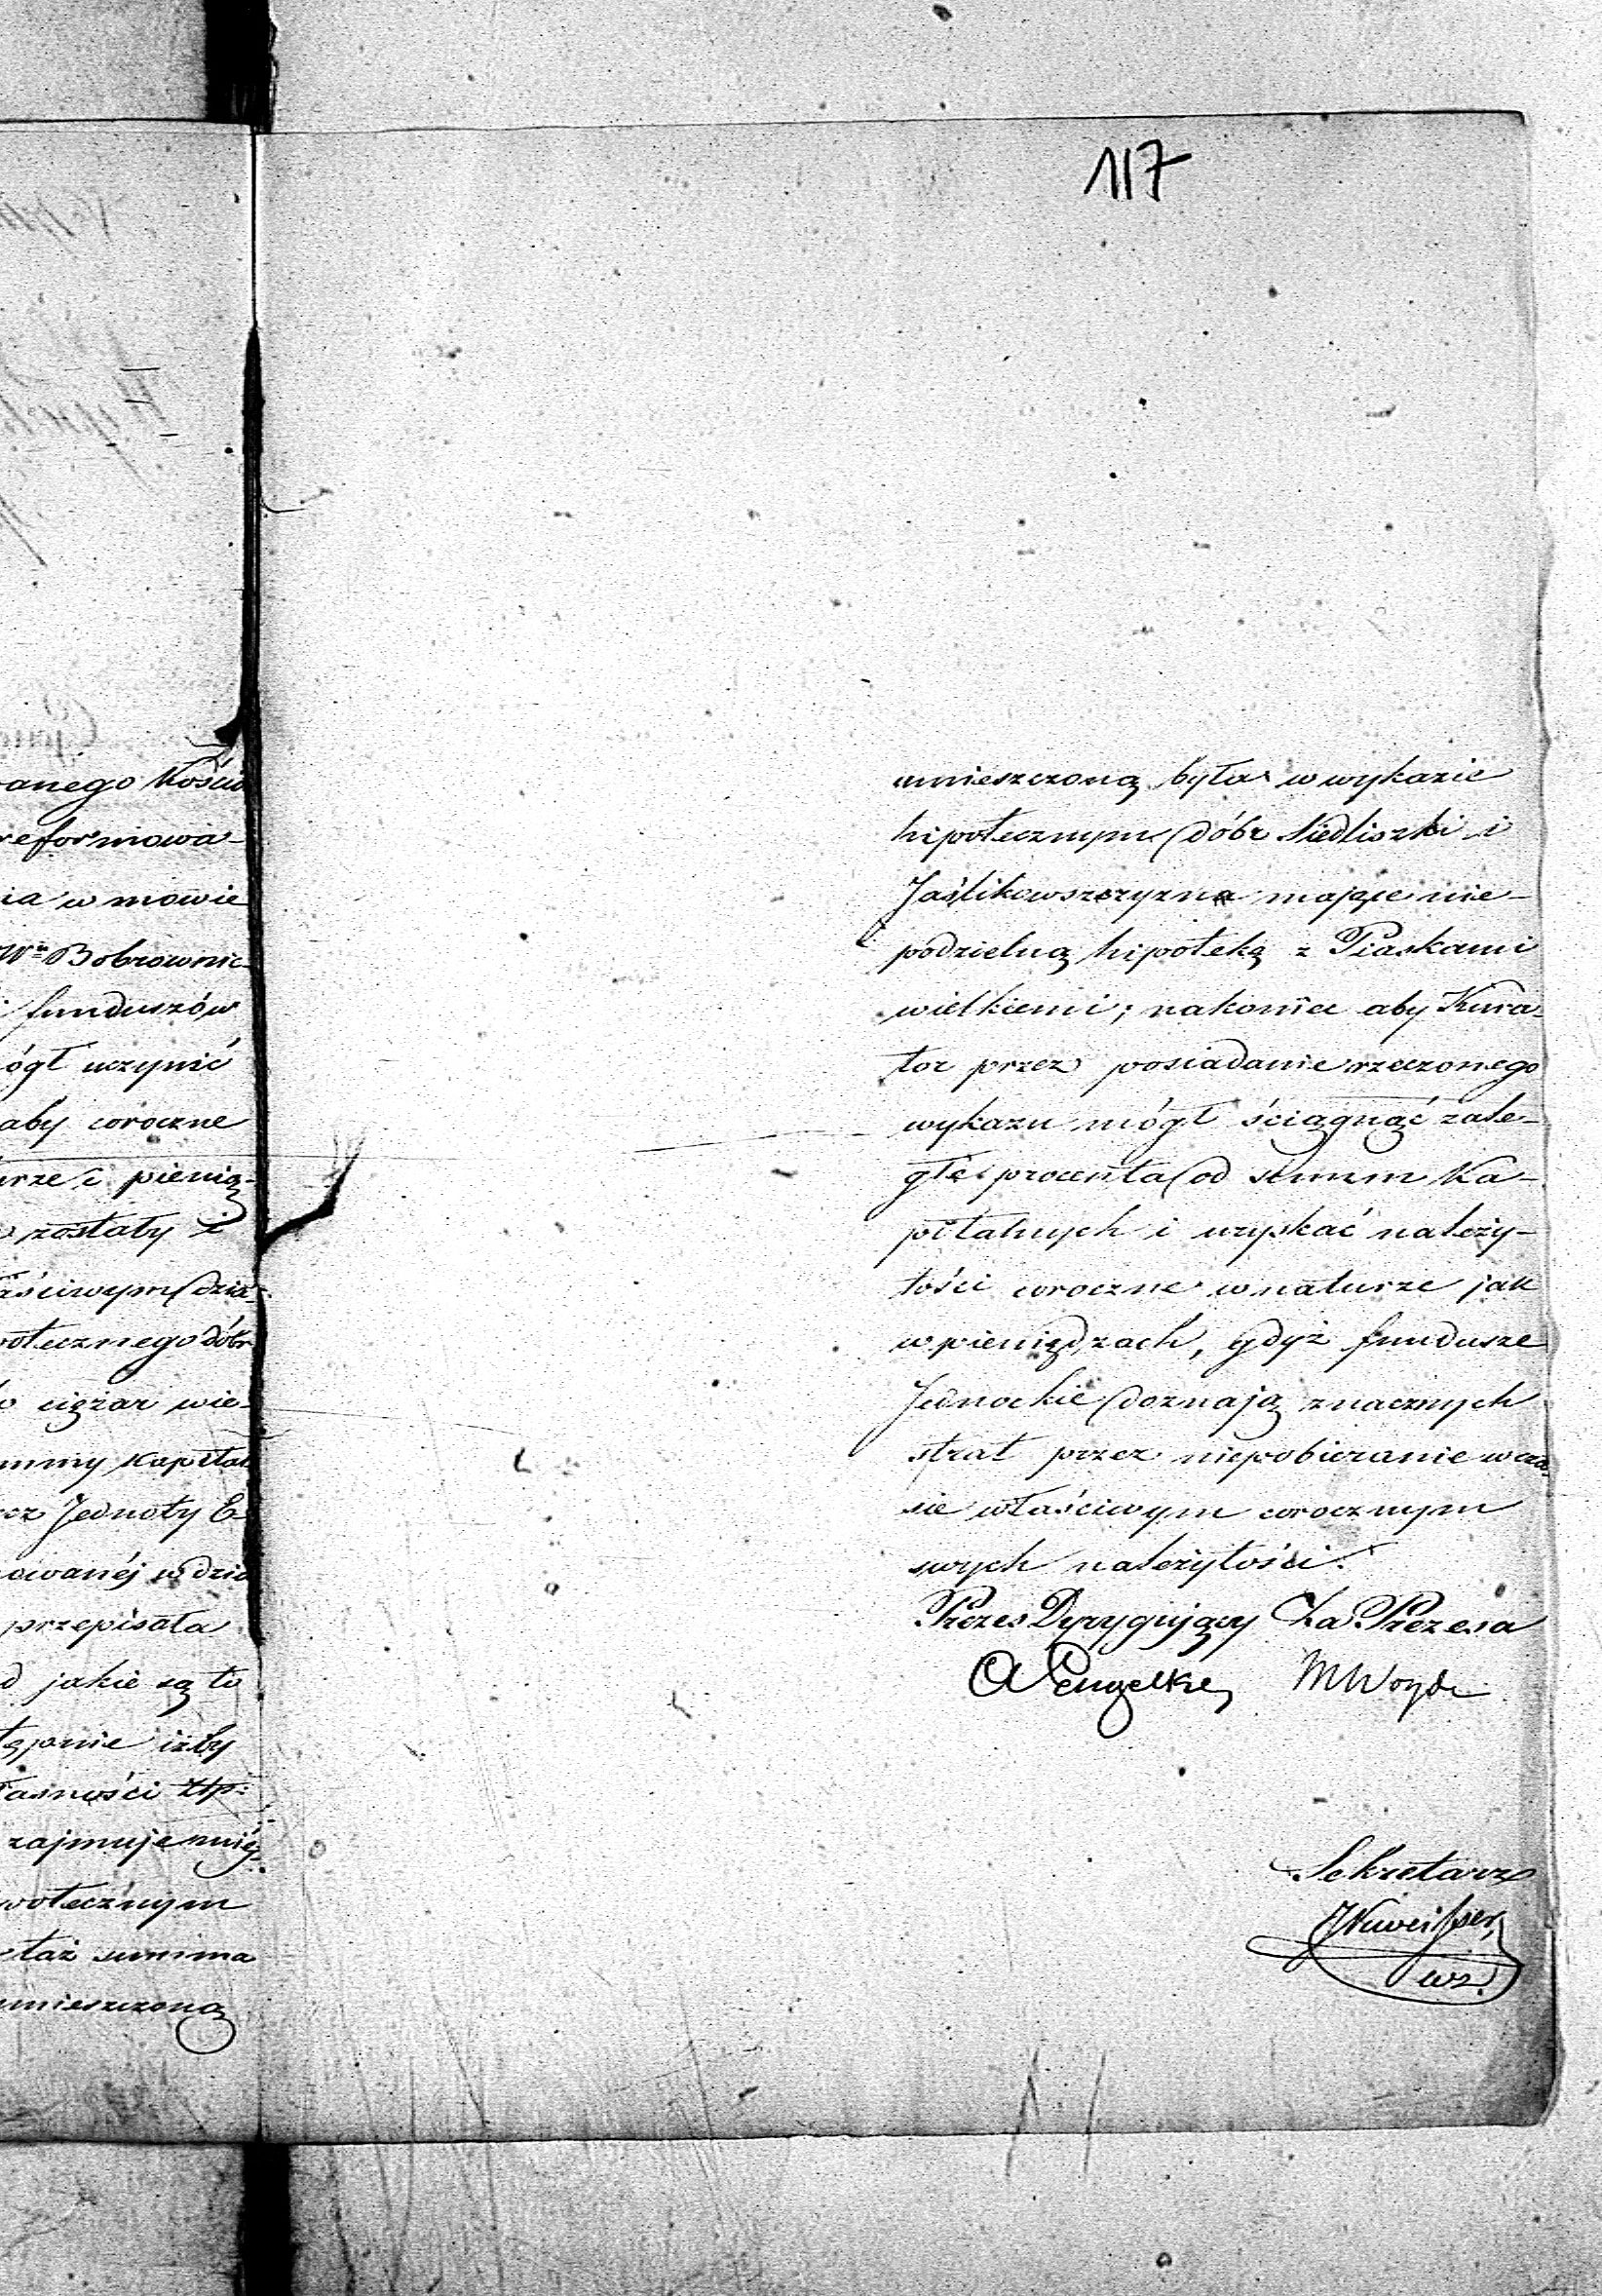 anego Kościo
reformowa-
ia w mowie
Wn Bobrownic-
funduszów
ógł uczynić
aby coroczne
urze i pienią-
zostały i
aściwym dzia-
otecznego dóbr
ciężar wie-
ummy Kapital
cz Jednoty E
owanéj w dzia
przepisała
d jakie są to
tępnie iżby
łasności złp:
zajmuje
potecznym
taż summa
umieszczoną
117
umieszczoną była w wykazie
hipotecznym dóbr Siedliszki i
Jaślikowszczyzna mające nie-
podzielną hipotekę z Piaskami
wielkiemi; nakoniec aby Kura-
tor przez posiadanie rzeczonego
wykazu mógł ściągnąć zale-
głe procenta od summ Ka-
pitalnych i uzyskać należy-
tości coroczne w naturze jak
w pieniędzach, gdyż fundusze
Jednockie doznają znacznych
strat przez niepobieranie w cza-
sie właściwym corocznym
swych należytości.
Prezes Dyrygujący Za Prezesa
A Engelke MWoyde
Sekretarz